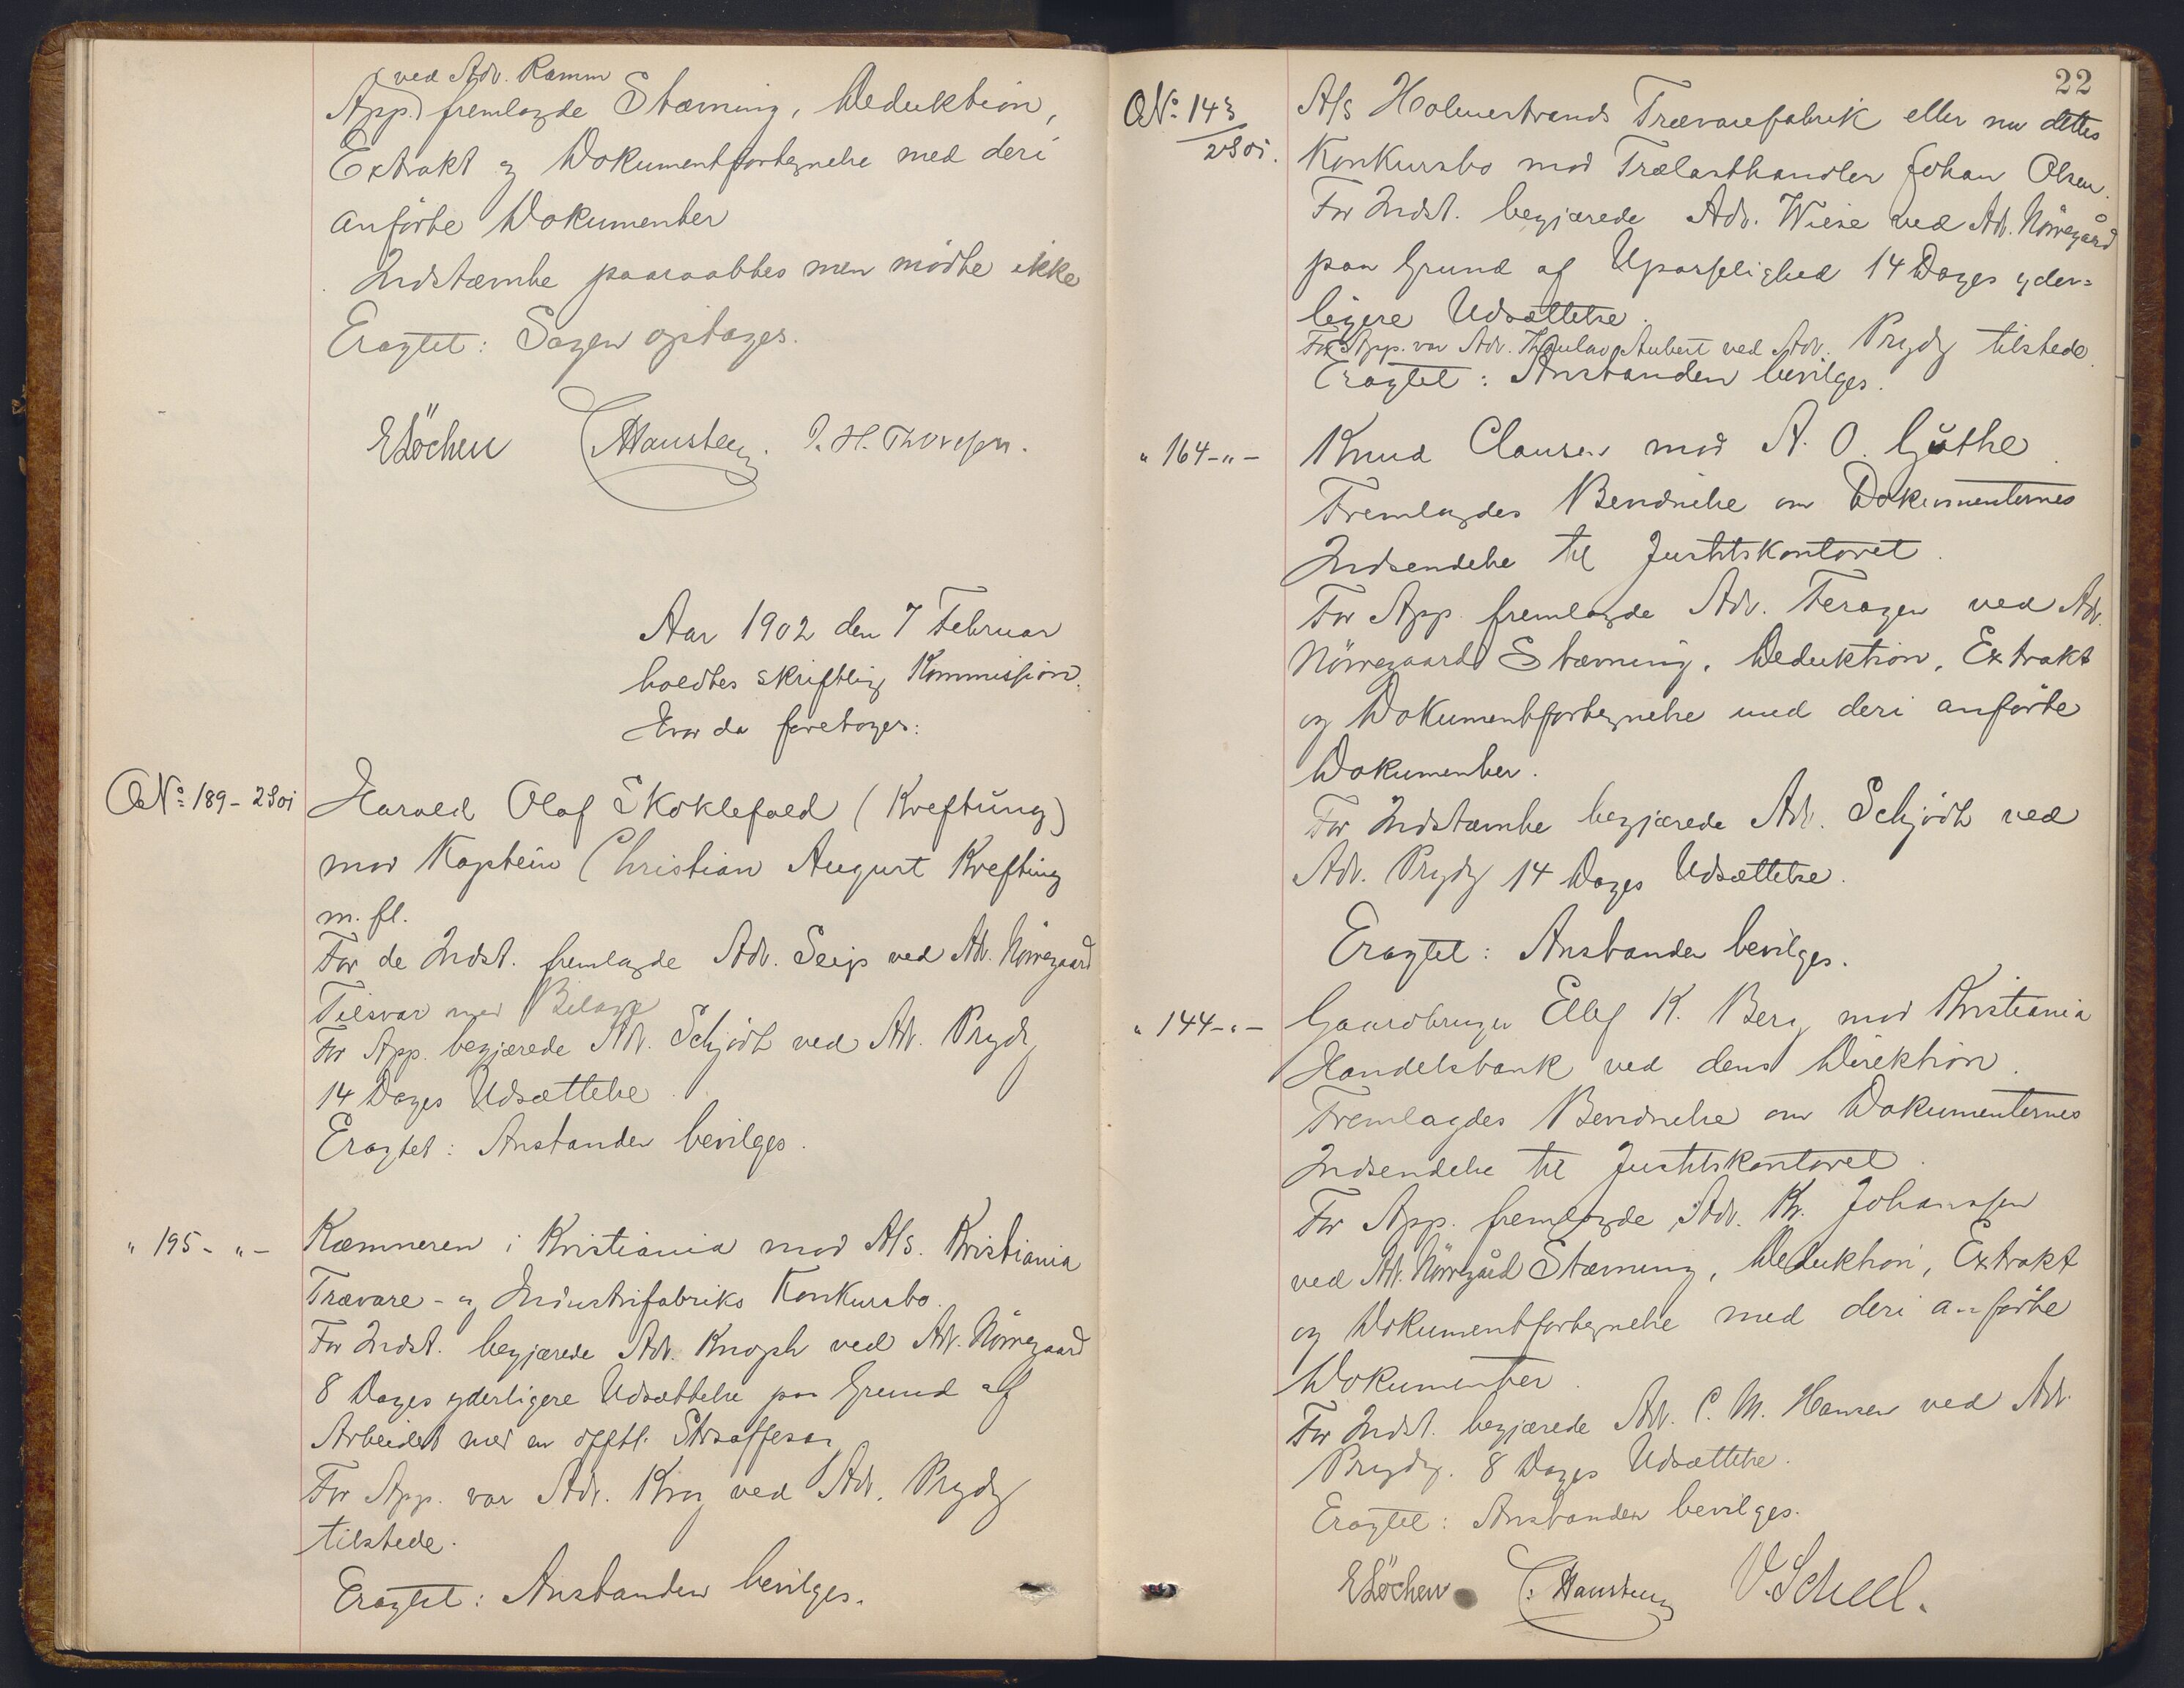 ved Adv. Ramm
App. fremlagde Stævning, Deduktion,
Extrakt og Dokumentfortegnelse med deri
anførte Dokumenter
Indstævnte paaraabtes men mødte ikke
Eragtet: Sagen optages.
E Löchen C Hansteen. J. H. Thoresen.
Aar 1902 den 7 Februar
holdtes skriftlig Kommission.
Hvor da foretoges:
No 189 - 1901
Harald Olaf Skoklefald (Krefting)
mod Kaptein Christian August Krefting
m. fl.
For de Indst. fremlagde Adv. Seip ved Adv. Nørregaard
Tilsvar med Bilage
For App. begjærede Adv. Schjødt ved Adv. Prydz
14 Dages Udsættelse.
Eragtet: Anstanden bevilges.
" 195 - " -
Kæmneren i Kristiania mod A/s. Kristiania
Trævare- og Industrifabriks Konkursbo.
For Indst. begjærede Adv. Knoph ved Adv. Nørregaard
8 Dages yderligere Udsættelse paa Grund af
Arbeidet med en offtl. Straffesag
For App. var Adv. Krog ved Adv. Prydz
tilstede.
Eragtet: Anstanden bevilges.
22
No 143
1901.
A/s Holmestrands Trævarefabrik eller nu dettes
Konkursbo mod Trælasthandler Johan Olsen.
For Indst. begjærede Adv. Wiese ved Adv. Nørregård
paa Grund af Upasselighed 14 Dages yder=
ligere Udsættelse.
For App. var Adv. Thaulow Aubert ved Adv. Prydz tilstede.
Eragtet: Anstanden bevilges.
" 164 - " -
Knud Clausen mod A. O. Gjøthe.
Fremlagdes Bevidnelse om Dokumenternes
Indsendelse til Justitskontoret.
For App. fremlagde Adv. Feragen ved Adv.
Nørregaard Stævning, Deduktion, Extrakt
og Dokumentfortegnelse med deri anførte
Dokumenter.
For Indstævnte begjærede Adv. Schjødt ved
Adv. Prydz 14 Dages Udsættelse.
Eragtet: Anstanden bevilges.
" 144 - " -
Gaardbruger Ellef K. Berg mod Kristiania
Handelsbank ved dens Direktion.
Fremlagdes Bevidnelse om Dokumenternes
Indsendelse til Justitskontoret.
For App. fremlagde Adv. Kr. Johanssen
ved Adv. Nørregård Stævning, Deduktion, Extrakt
og Dokumentfortegnelse med deri anførte
Dokumenter.
For Indst. begjærede Adv. C. M. Hansen ved Adv.
Prydz. 8 Dages Udsættelse.
Eragtet: Anstanden bevilges.
E Löchen C. Hansteen V. Scheel.